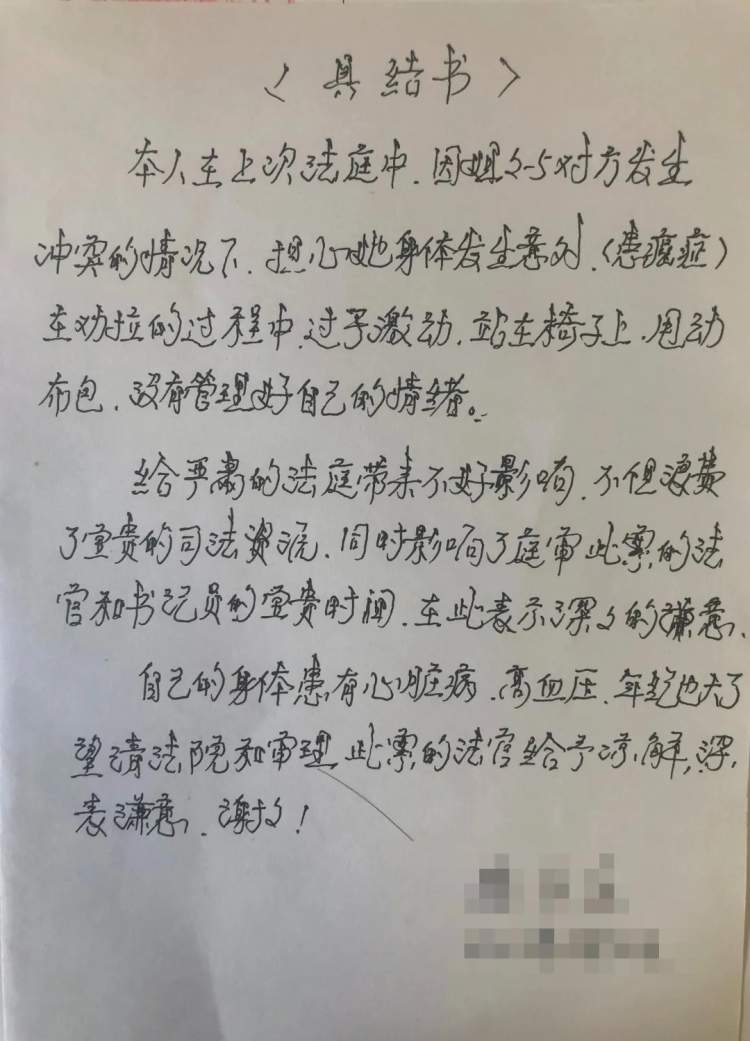 〈具结书〉
本人在上次法庭中.因姐々与对方发生
冲突的情况下.担心她身体发生意外.(患癌症)
在劝拉的过程中.过于激动.站在椅子上.甩动
布包.没有管理好自己的情绪。
给严肃的法庭带来不好影响.不但浪费
了宝贵的司法资源.同时影响了庭审此案的法
官和书记员的宝贵时间.在此表示深々的谦意.
自己的身体患有心脏病.高血压.年纪也大了
望请法院和审理此案的法官给予谅解.深
表谦意.谢々!